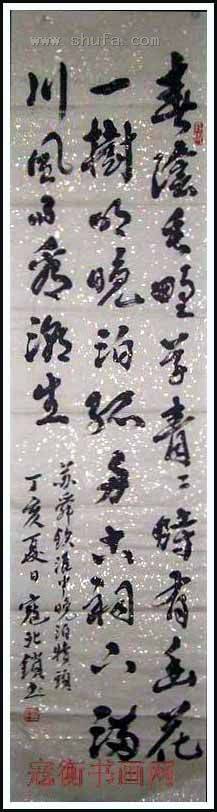 书法 www.shufa.com
春陰垂野草青々時有幽花
一樹明晚泊孤舟古祠下滿
川風雨看潮生
苏舜钦淮中晚泊犊頭
丁亥夏日寇北鎖书
寇衡书画网